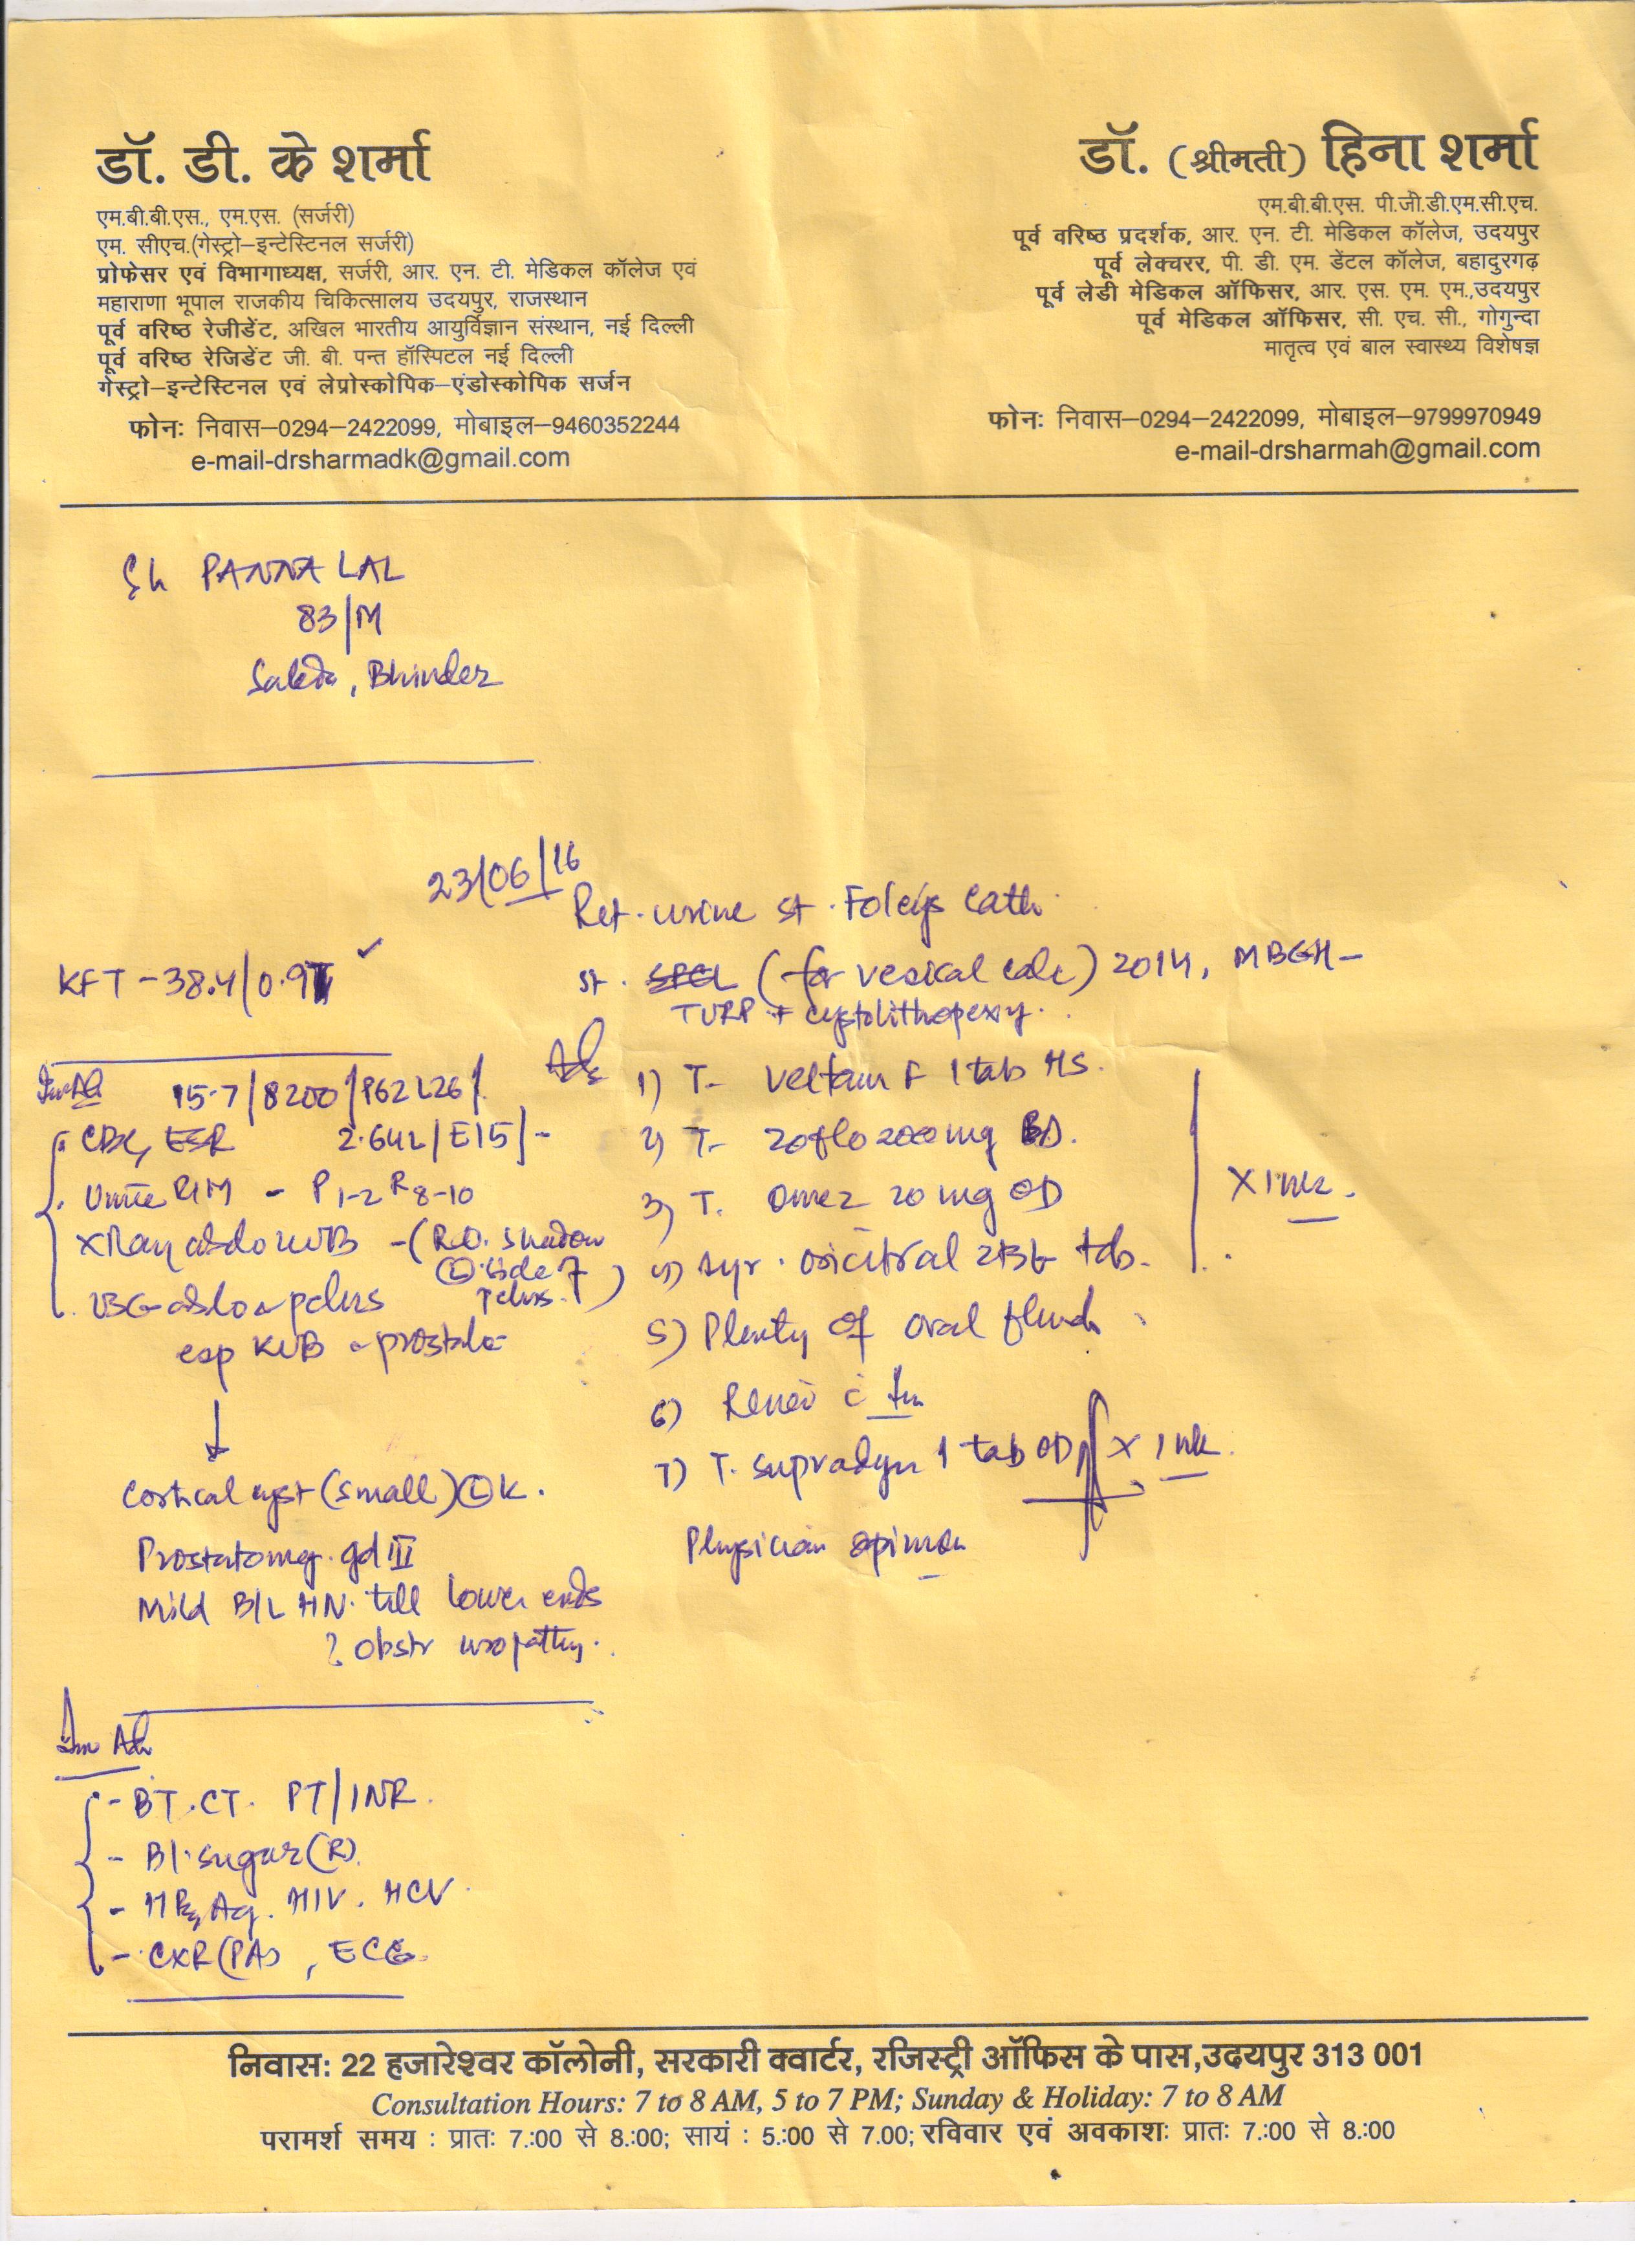 डॉ. डी. के शर्मा
एम.बी.बी.एस., एम.एस. (सर्जरी)
एम. सीएच.(गेस्ट्रो–इन्टेस्टिनल सर्जरी)
प्रोफेसर एवं विभागाध्यक्ष, सर्जरी, आर. एन. टी. मेडिकल कॉलेज एवं
महाराणा भूपाल राजकीय चिकित्सालय उदयपुर, राजस्थान
पूर्व वरिष्ठ रेजीडेंट, अखिल भारतीय आयुर्विज्ञान संस्थान, नई दिल्ली
पूर्व वरिष्ठ रेजिडेंट जी. बी. पन्त हॉस्पिटल नई दिल्ली
गेस्ट्रो–इन्टेस्टिनल एवं लेप्रोस्कोपिक–एंडोस्कोपिक सर्जन
फोनः निवास–0294–2422099, मोबाइल–9460352244
e-mail-drsharmadk@gmail.com
डॉ. (श्रीमती) हिना शर्मा
एम.बी.बी.एस. पी.जी.डी.एम.सी.एच.
पूर्व वरिष्ठ प्रदर्शक, आर. एन. टी. मेडिकल कॉलेज, उदयपुर
पूर्व लेक्चरर, पी. डी. एम. डेंटल कॉलेज, बहादुरगढ़
पूर्व लेडी मेडिकल ऑफिसर, आर. एस. एम. एम.,उदयपुर
पूर्व मेडिकल ऑफिसर, सी. एच. सी., गोगुन्दा
मातृत्व एवं बाल स्वास्थ्य विशेषज्ञ
फोनः निवास–0294–2422099, मोबाइल–9799970949
e-mail-drsharmah@gmail.com
Sh PANNA LAL
83/M
Bhinder
23/06/16
Ret. urine st. Foleys Cath.
st. SPCL (for vesical calc) 2014, MBGH –
TURP + cystolithopexy.
KFT – 38.4/0.9
Adv
1) T. Veltam F 1 tab HS.
2) T. Zoflo 200 mg BD.
3) T. Omez 20 mg OD
4) Syr. Oricitral 2TSF tds.
X 1 wk.
5) Plenty of oral fluids
6) Review c
7) T. Supradyn 1 tab OD X 1 wk.
Physician opinion
Inv Ad 15.7/8200/P62 L26/
CBC, ESR 2.64L/E15/-
Urine R/M – P 1-2 R 8-10
X Ray abdo KUB – (R.O. shadow
(L) side of
pelvis.)
USG abdo & pelvis
esp KUB & prostate
↓
Cortical cyst (small) (L) K.
Prostatomeg. gd III
Mild B/L HN. till lower ends
? Obstr uropathy.
Inv Ad
- BT. CT. PT/INR.
- Bl. sugar (R)
- HBsAg. HIV. HCV
- CXR (PA), ECG
निवासः 22 हजारेश्वर कॉलोनी, सरकारी क्वार्टर, रजिस्ट्री ऑफिस के पास,उदयपुर 313 001
Consultation Hours: 7 to 8 AM, 5 to 7 PM; Sunday & Holiday: 7 to 8 AM
परामर्श समय : प्रातः 7.:00 से 8.:00; सायं : 5.:00 से 7.00; रविवार एवं अवकाशः प्रातः 7.:00 से 8.:00